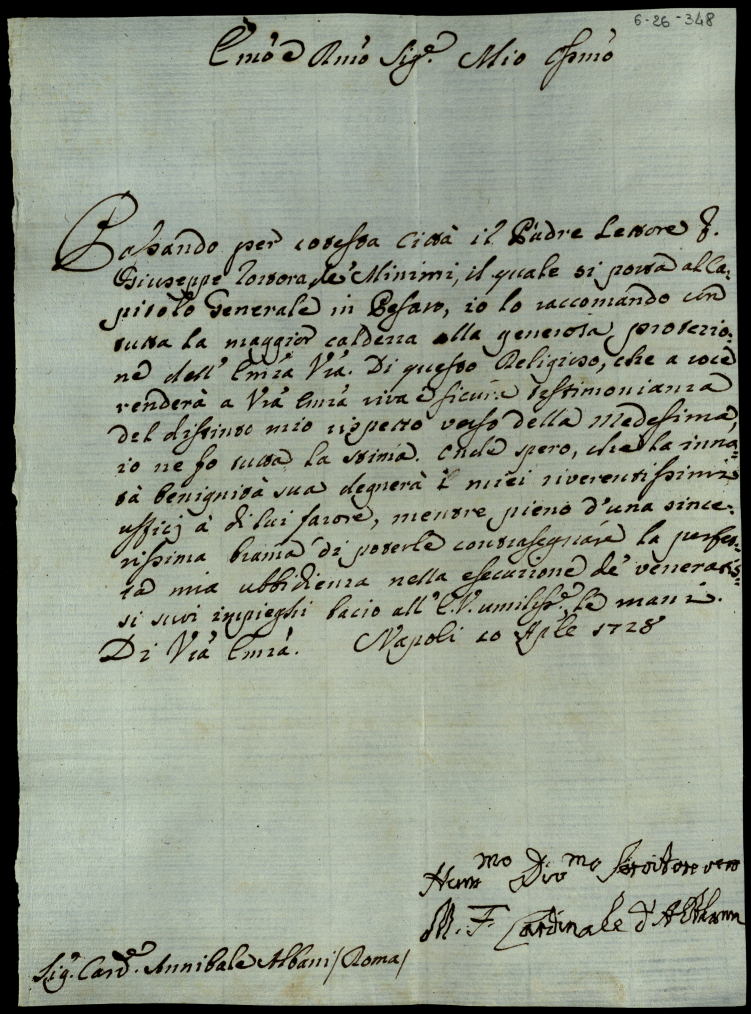 6-26-348
Em̃o e Rm̃o Sig.e Mio Oss̃mo
Passando per cotesta Città il Padre Lettore F.
Giuseppe Tortora de' Minimi, il quale si porta al Ca-
pitolo Generale in Pesaro, io lo raccomando con
tutta la maggior caldezza alla generosa protezio-
ne dell' Em̃za Vr̃a. Di questo Religioso, che a voce
renderà a Vr̃a Em̃za viva e sicura testimonianza
del distinto mio rispetto verso della Medesima,
io ne fo tutta la stima. Onde spero, che la inna-
ta benignità sua degnerà i miei riverentissimi
ufficj à di lui favore, mentre pieno d'una since-
rissima brama di poterle contrasegnare la perfet-
ta mia ubbidienza nella esecuzione de' veneratis-
si suoi impieghi bacio all' E.V. umiliss.e le mani.
Di Vr̃a Em̃za. Napoli 10 Ap̃le 1728
Hum mo Div mo Servitore vero
M. F. Cardinale d'Althann
Sig. Card.e Annibale Albani /Roma/